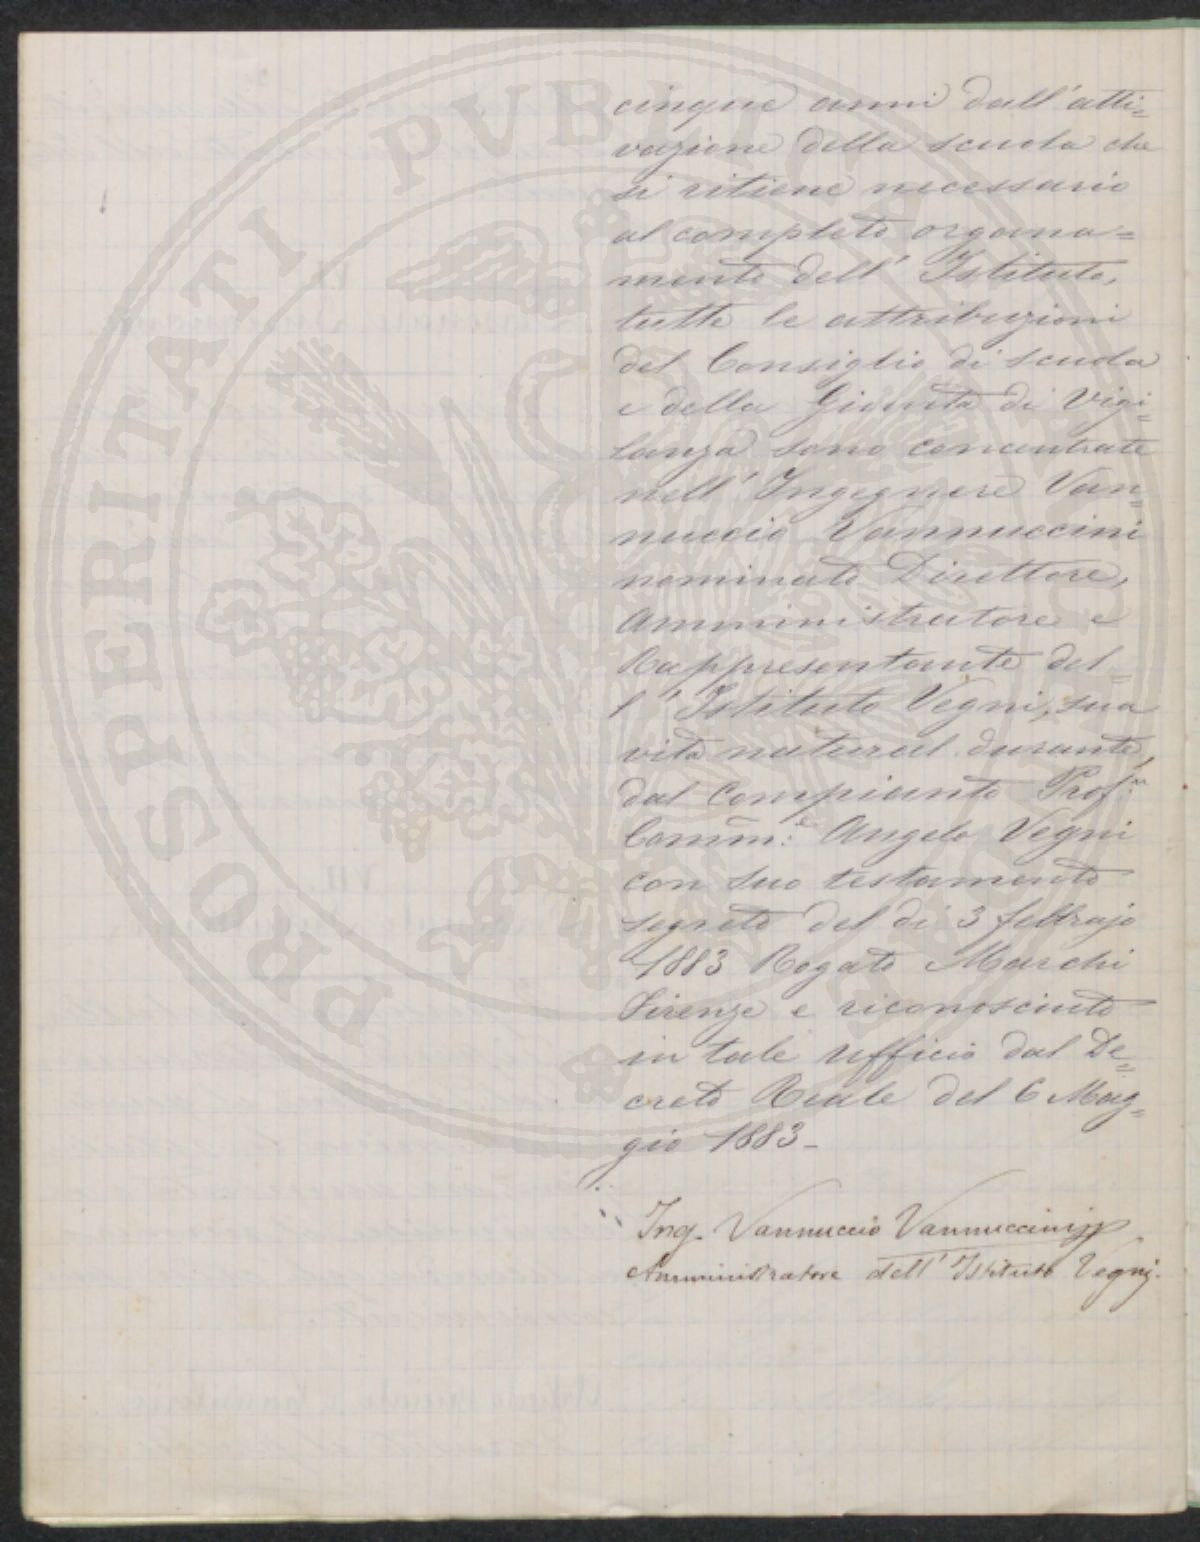 cinque anni dall'atti=
vazione della scuola che
si ritiene necessario
al completo organa=
mento dell'Istituto,
tutte le attribuzioni
del Consiglio di scuola
e della Giunta di Vigi=
lanza sono concentrate
nell'Ingegnere Van=
nuccio Vannuccini
nominato Direttore,
Amministratore e
Rappresentante del=
l'Istituto Vegni, sua
vita natural durante,
dal compianto Prof.re
Comm: Angelo Vegni
con suo testamento
segreto del di 3 febbrajo
1883 Rogato Marchi
Firenze e riconosciuto
in tale ufficio dal De=
creto Reale del 6 Mag=
gio 1883-
Ing. Vannuccio Vannuccini
Amministratore dell'Istituto Vegni.
PROSPERITATI PVBLICAE